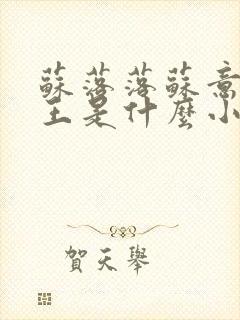 蘇落落蘇意
王是什麼小
賀天舉